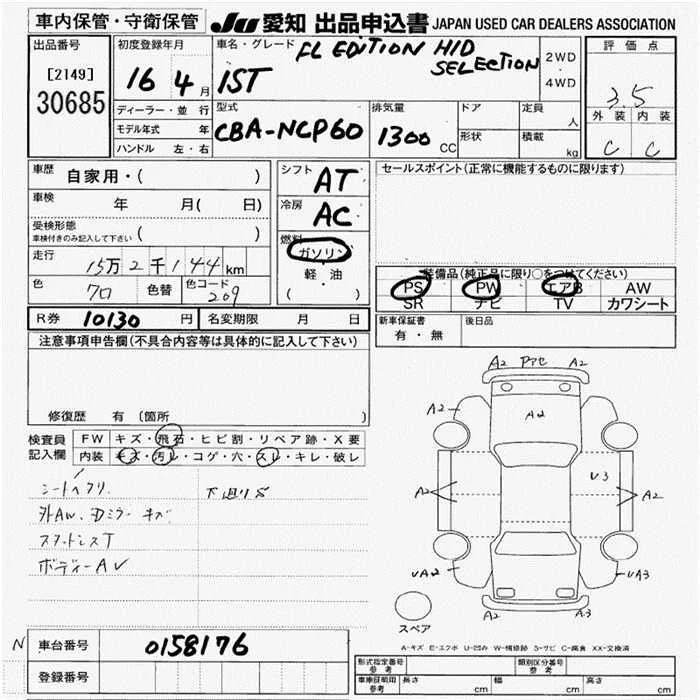 車内保管・守衛保管 JU 愛知 出品申込書 JAPAN USED CAR DEALERS ASSOCIATION
出品番号 初度登録年月 車名・グレード FL EDITION HID SELECTION 2WD 4WD 評価点
[2149]
30685 16 4月 IST 3.5
ディーラー・並行 型式 排気量 ドア 定員 人 外装 内装
モデル年式 年 CBA-NCP60 1300 CC 形状 積載 kg C C
ハンドル 左・右
車歴 自家用・( ) シフト AT セールスポイント(正常に機能するものに限ります)
車検 年 月( 日) 冷房 AC
受検形態
車検付きのみ記入して下さい ( )
燃料 ガソリン
走行 15万2千144km 軽・油
( ・ )
装備品(純正品に限り○をつけてください)
PS PW エアB AW
SR ナビ TV カワシート
色 クロ 色替 色コード 209
R券 10130 円 名変期限 月 日 新車保証書 有・無 後日品
注意事項申告欄(不具合内容等は具体的に記入して下さい)
修復歴 有(箇所 )
検査員記入欄 FW キズ・飛石・ヒビ割・リペア跡・X要
内装 キズ・汚レ・コゲ・穴・スレ・キレ・破レ
シートヘタリ 下廻りS
外AW、Dミラーキズ
スタッドレスT
ボディーAV
A2 アセ A2
A2 A2
U3
A2 A2
UA2 UA3
A2 A3
スペア
A-キズ E-エクボ U-凹み W-補修跡 S-サビ C-腐食 XX-交換済
N 車台番号 0158176
登録番号
形式指定番号 参考 類別区分番号 参考
車庫証明用 参考 長さ cm 幅 cm 高さ cm